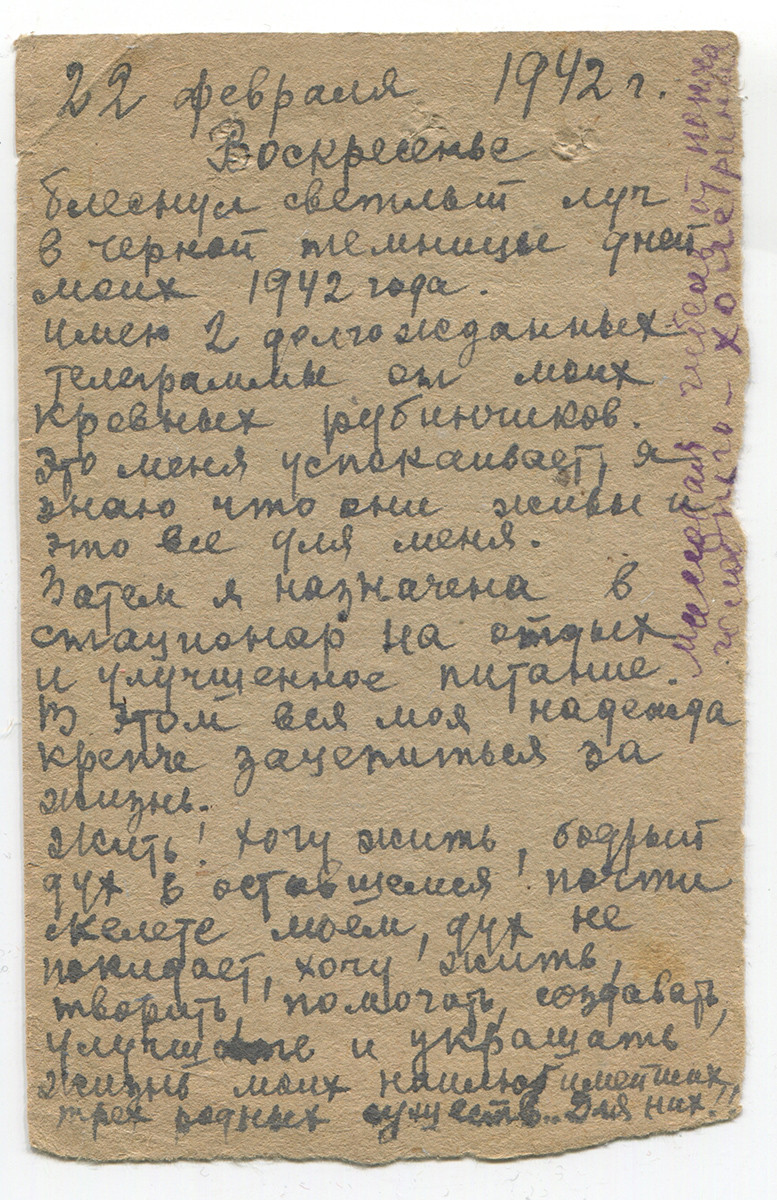 22 февраля 1942 г.
Воскресенье
блеснул светлый луч
в черной темнице дней
моих 1942 года.
имею 2 долгожданных
телеграммы от моих
кровных рубинчиков.
Это меня успокаивает, я
знаю что они живы и
это все для меня.
Затем я назначена в
стационар на отдых
и улучшенное питание.
В этом вся моя надежда
крепче зацепиться за
жизнь.
Жить! хочу жить, бодрый
дух в оставшемся почти
скелете моем, дух не
покидает, хочу жить,
творить, помогать, создавать,
улучшать и украшать
жизнь моих наилюбимейших
трех родных существ.. Для них!!